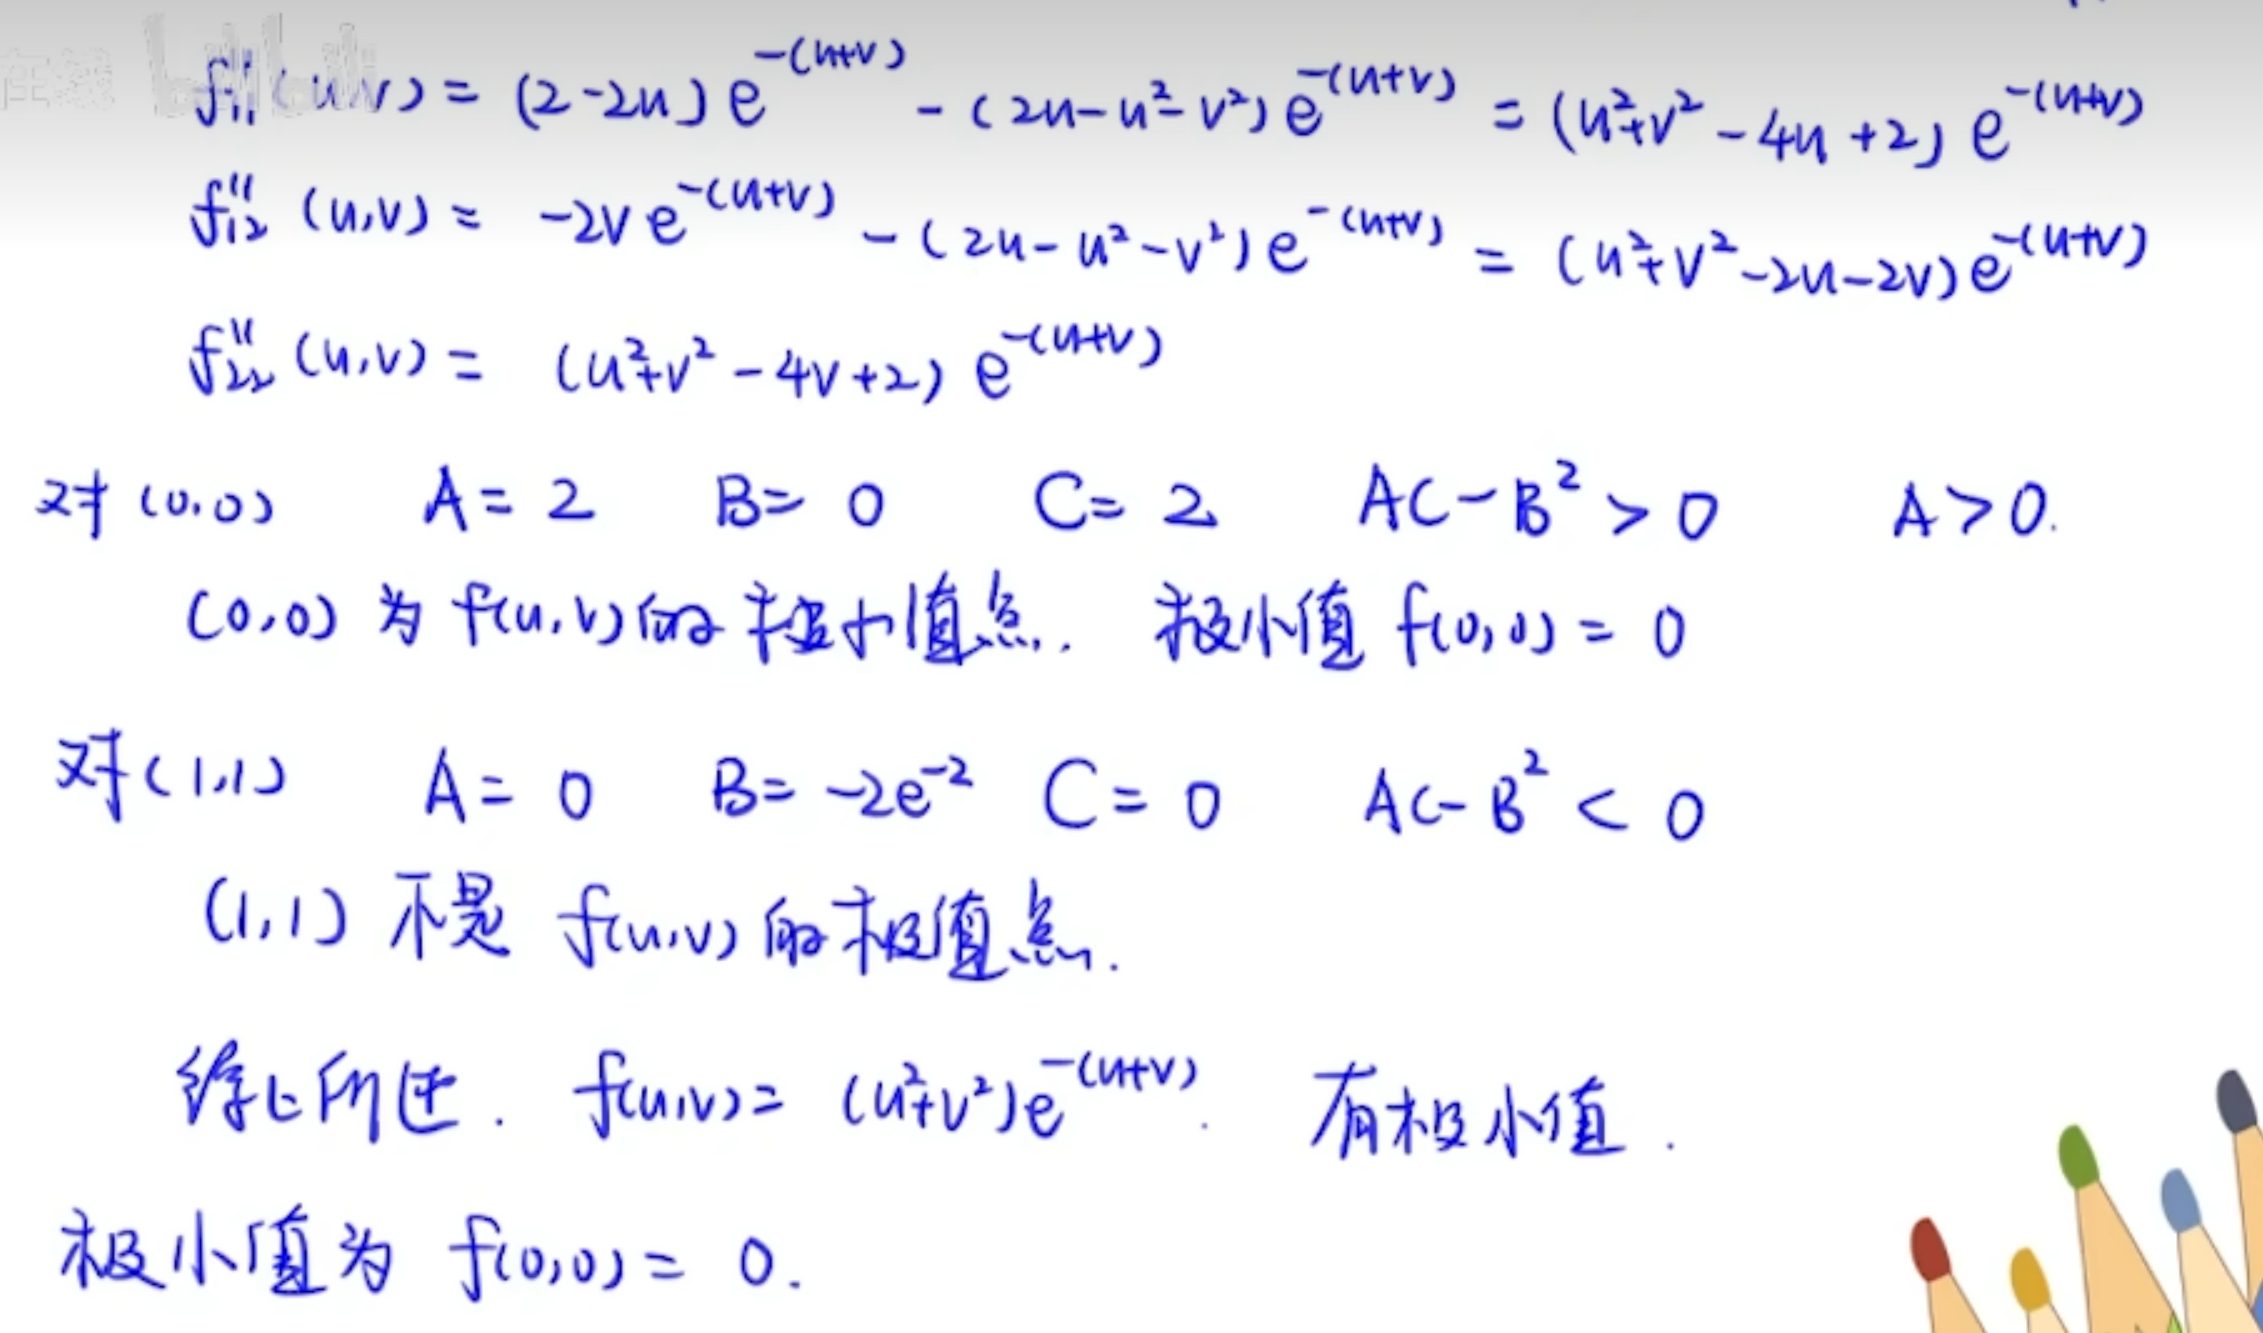 在线 bilibili
f₁₁''(u,v) = (2-2u)e^{-(u+v)} - (2u-u²-v²)e^{-(u+v)} = (u²+v²-4u+2)e^{-(u+v)}
f₁₂''(u,v) = -2ve^{-(u+v)} - (2u-u²-v²)e^{-(u+v)} = (u²+v²-2u-2v)e^{-(u+v)}
f₂₂''(u,v) = (u²+v²-4v+2)e^{-(u+v)}
对(0,0) A=2 B=0 C=2 AC-B²>0 A>0.
(0,0)为f(u,v)的极小值点. 极小值f(0,0)=0
对(1,1) A=0 B=-2e^{-2} C=0 AC-B²<0
(1,1)不是f(u,v)的极值点.
综上所述. f(u,v)=(u²+v²)e^{-(u+v)}. 有极小值.
极小值为f(0,0)=0.